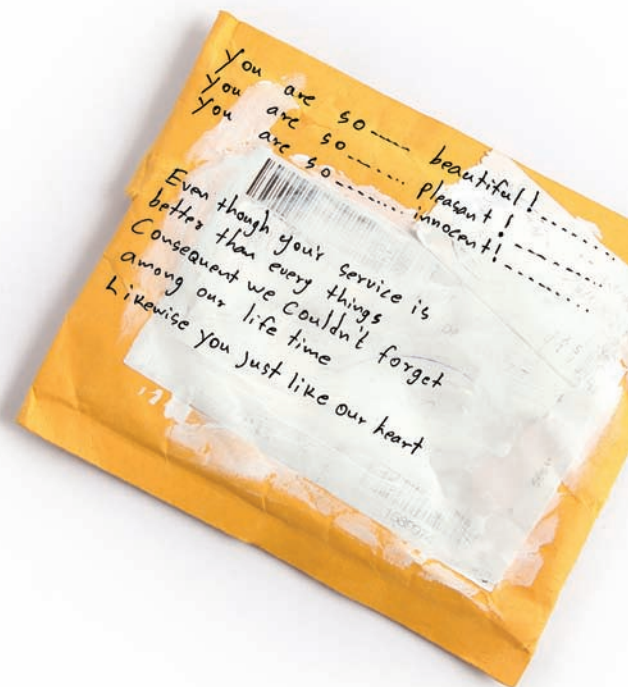 You are so---- beautiful!--------
You are so------- pleasant!--------
You are so-------- innocent!----------
Even though your service is
better than every things
Consequent we Couldn't forget
among our life time
Likewise you just like our heart